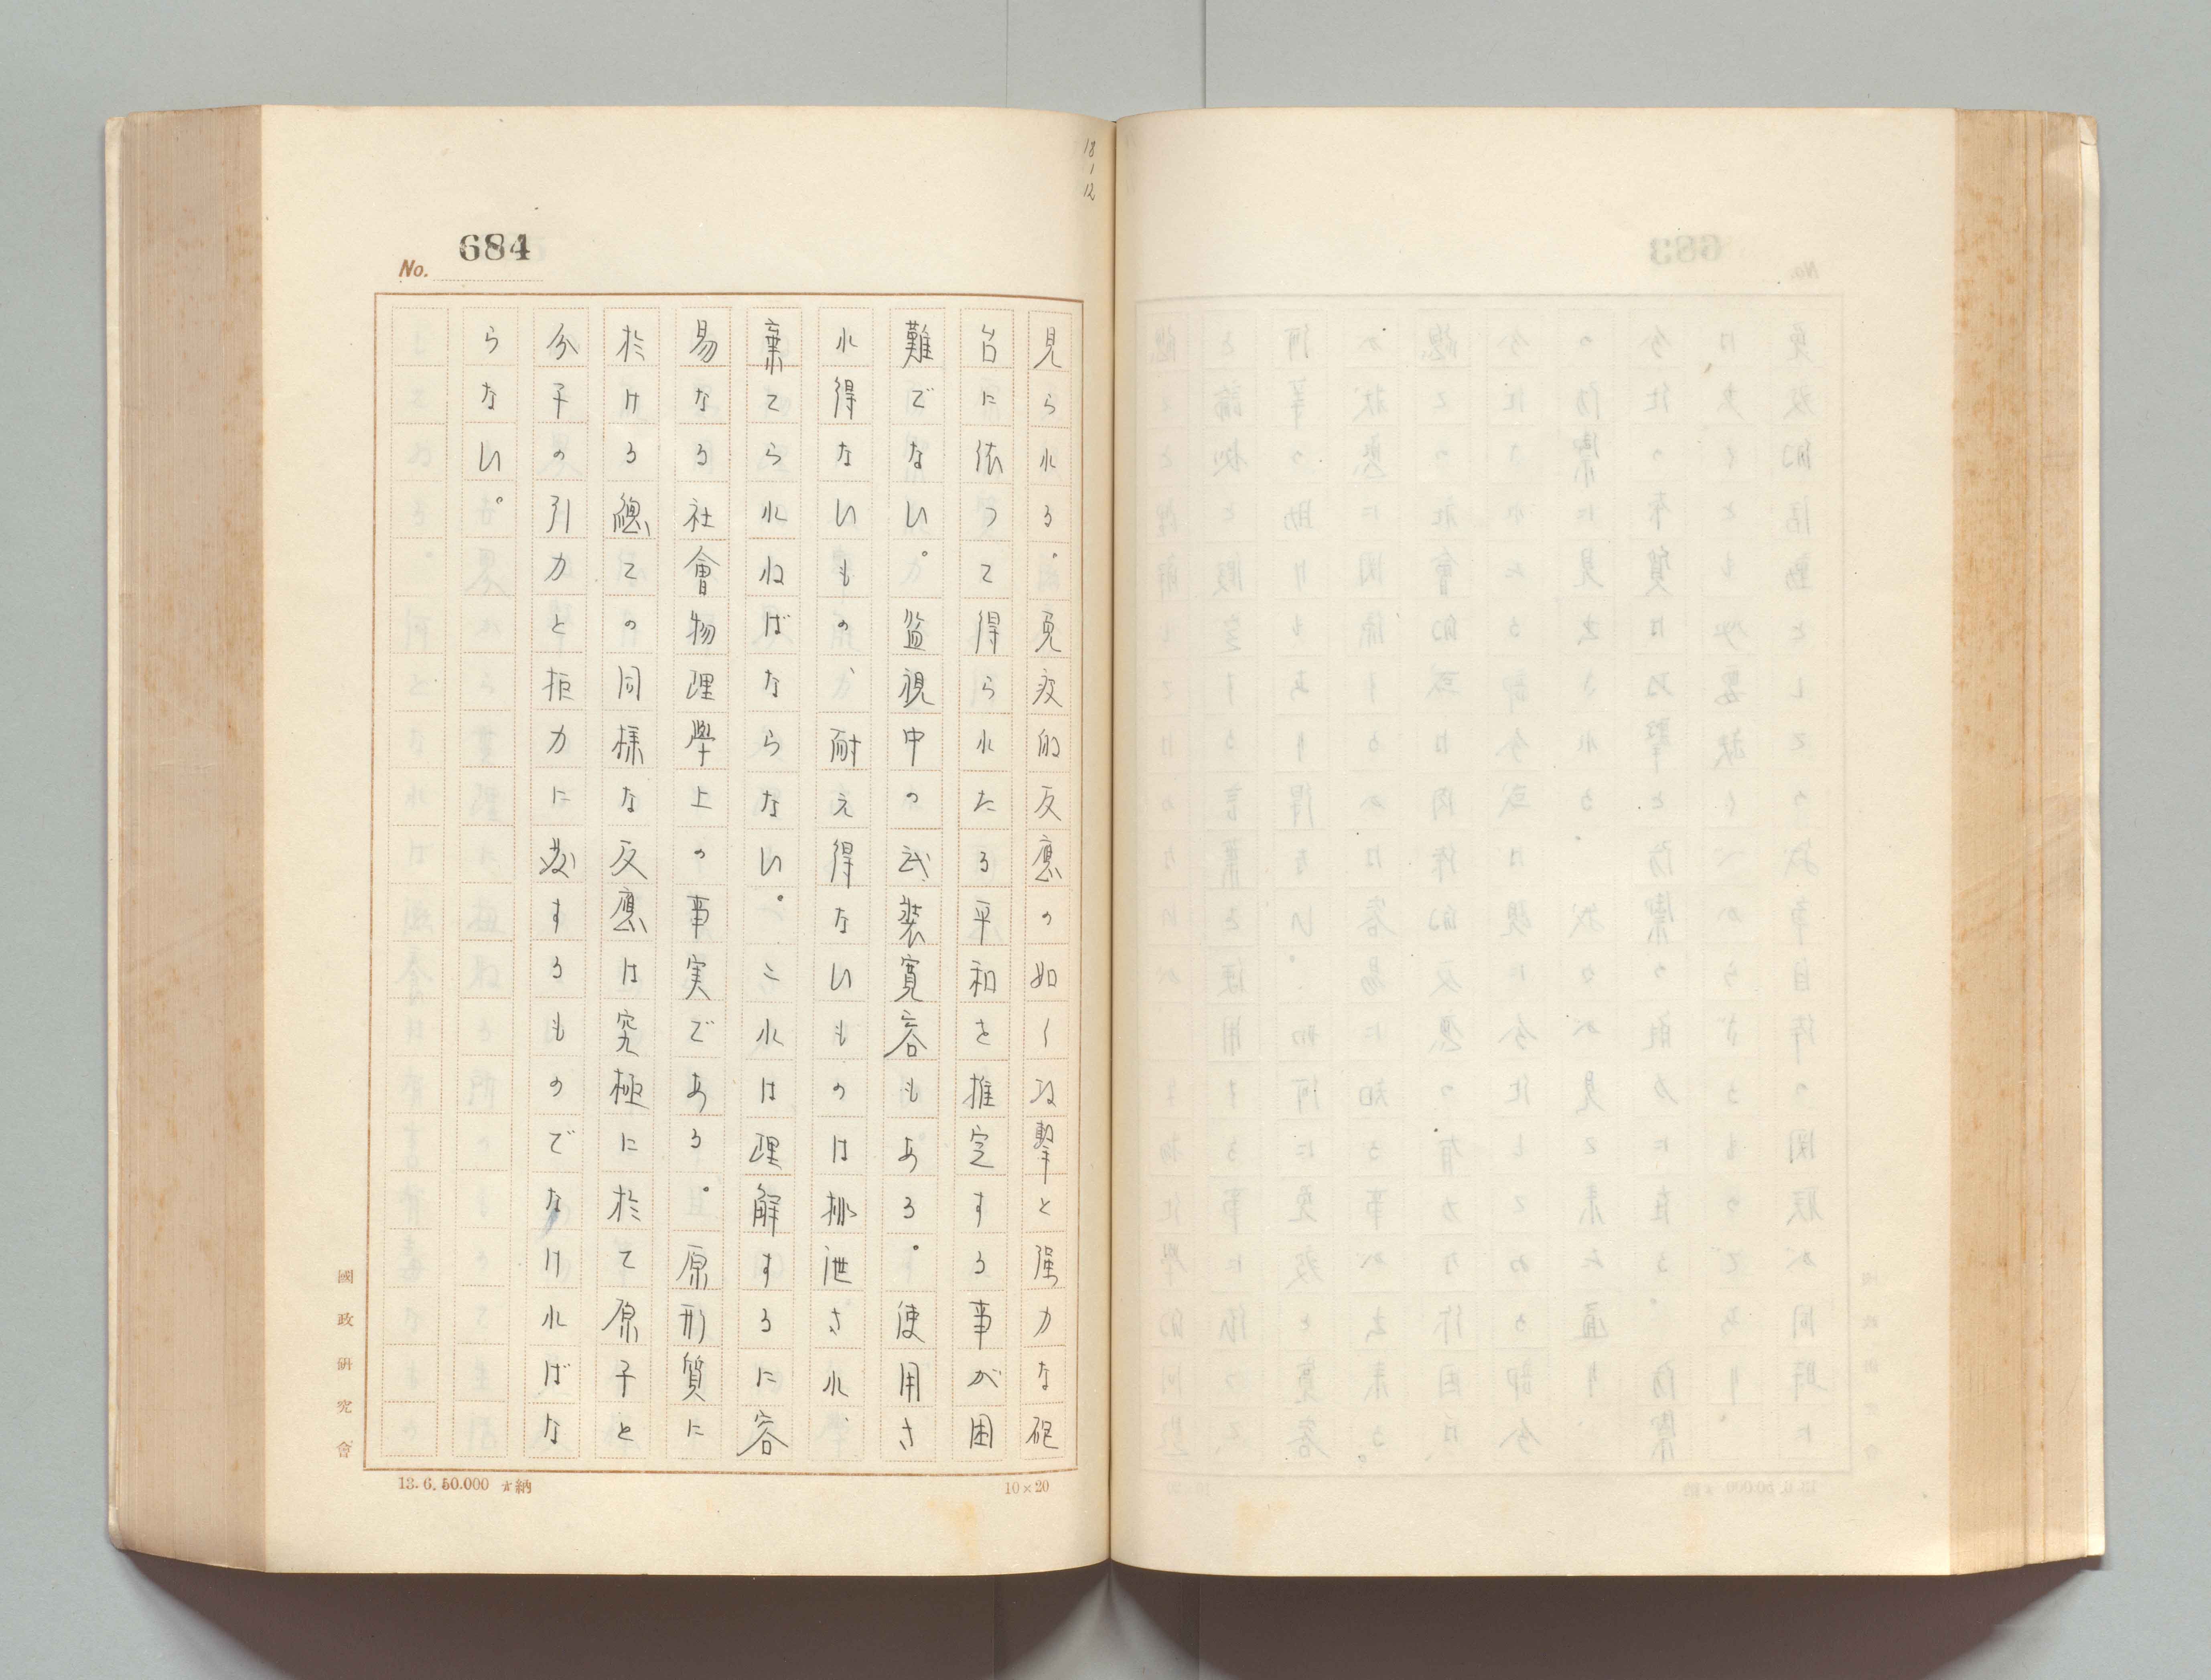 18
1
12
No. 684
見られる。免疫的反應の如く攻擊と强力な砲
台に依つて得られたる平和を推定する事が困
難でない。監視中の武裝寬容もある。使用さ
れ得ないもの、耐え得ないものは排泄され、
棄てられねばならない。これは理解するに容
易なる社會物理學上の事実である。原形質に
於ける總ての同様な反應は究極に於て原子と
分子の引力と拒力に歿するものでなければな
らない。
國政硏究會
13.6.50.000 納
10×20